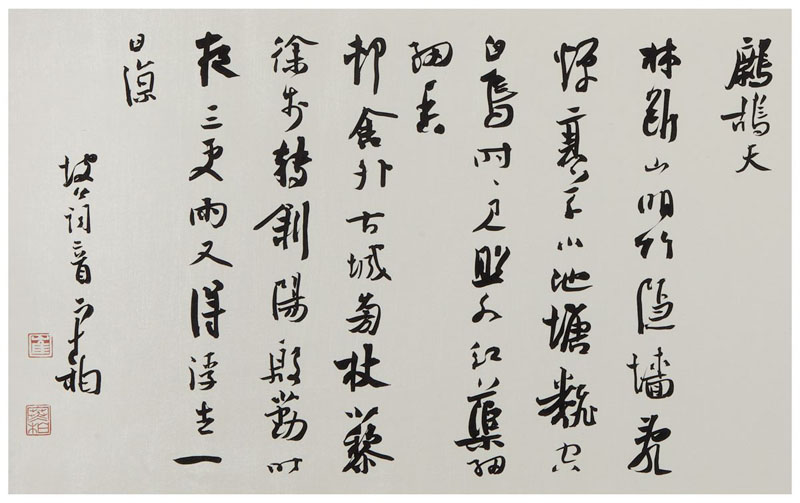 鷓鴣天
林斷山明竹隱墻亂
蟬衰草小池塘飜空
白鳥時〻見照水紅蕖細
細香
邨舍外古城旁杖藜
徐步轉斜陽殷勤昨
夜三更雨又得浮生一
日涼
坡公詞一首寒柏
崔
寒柏